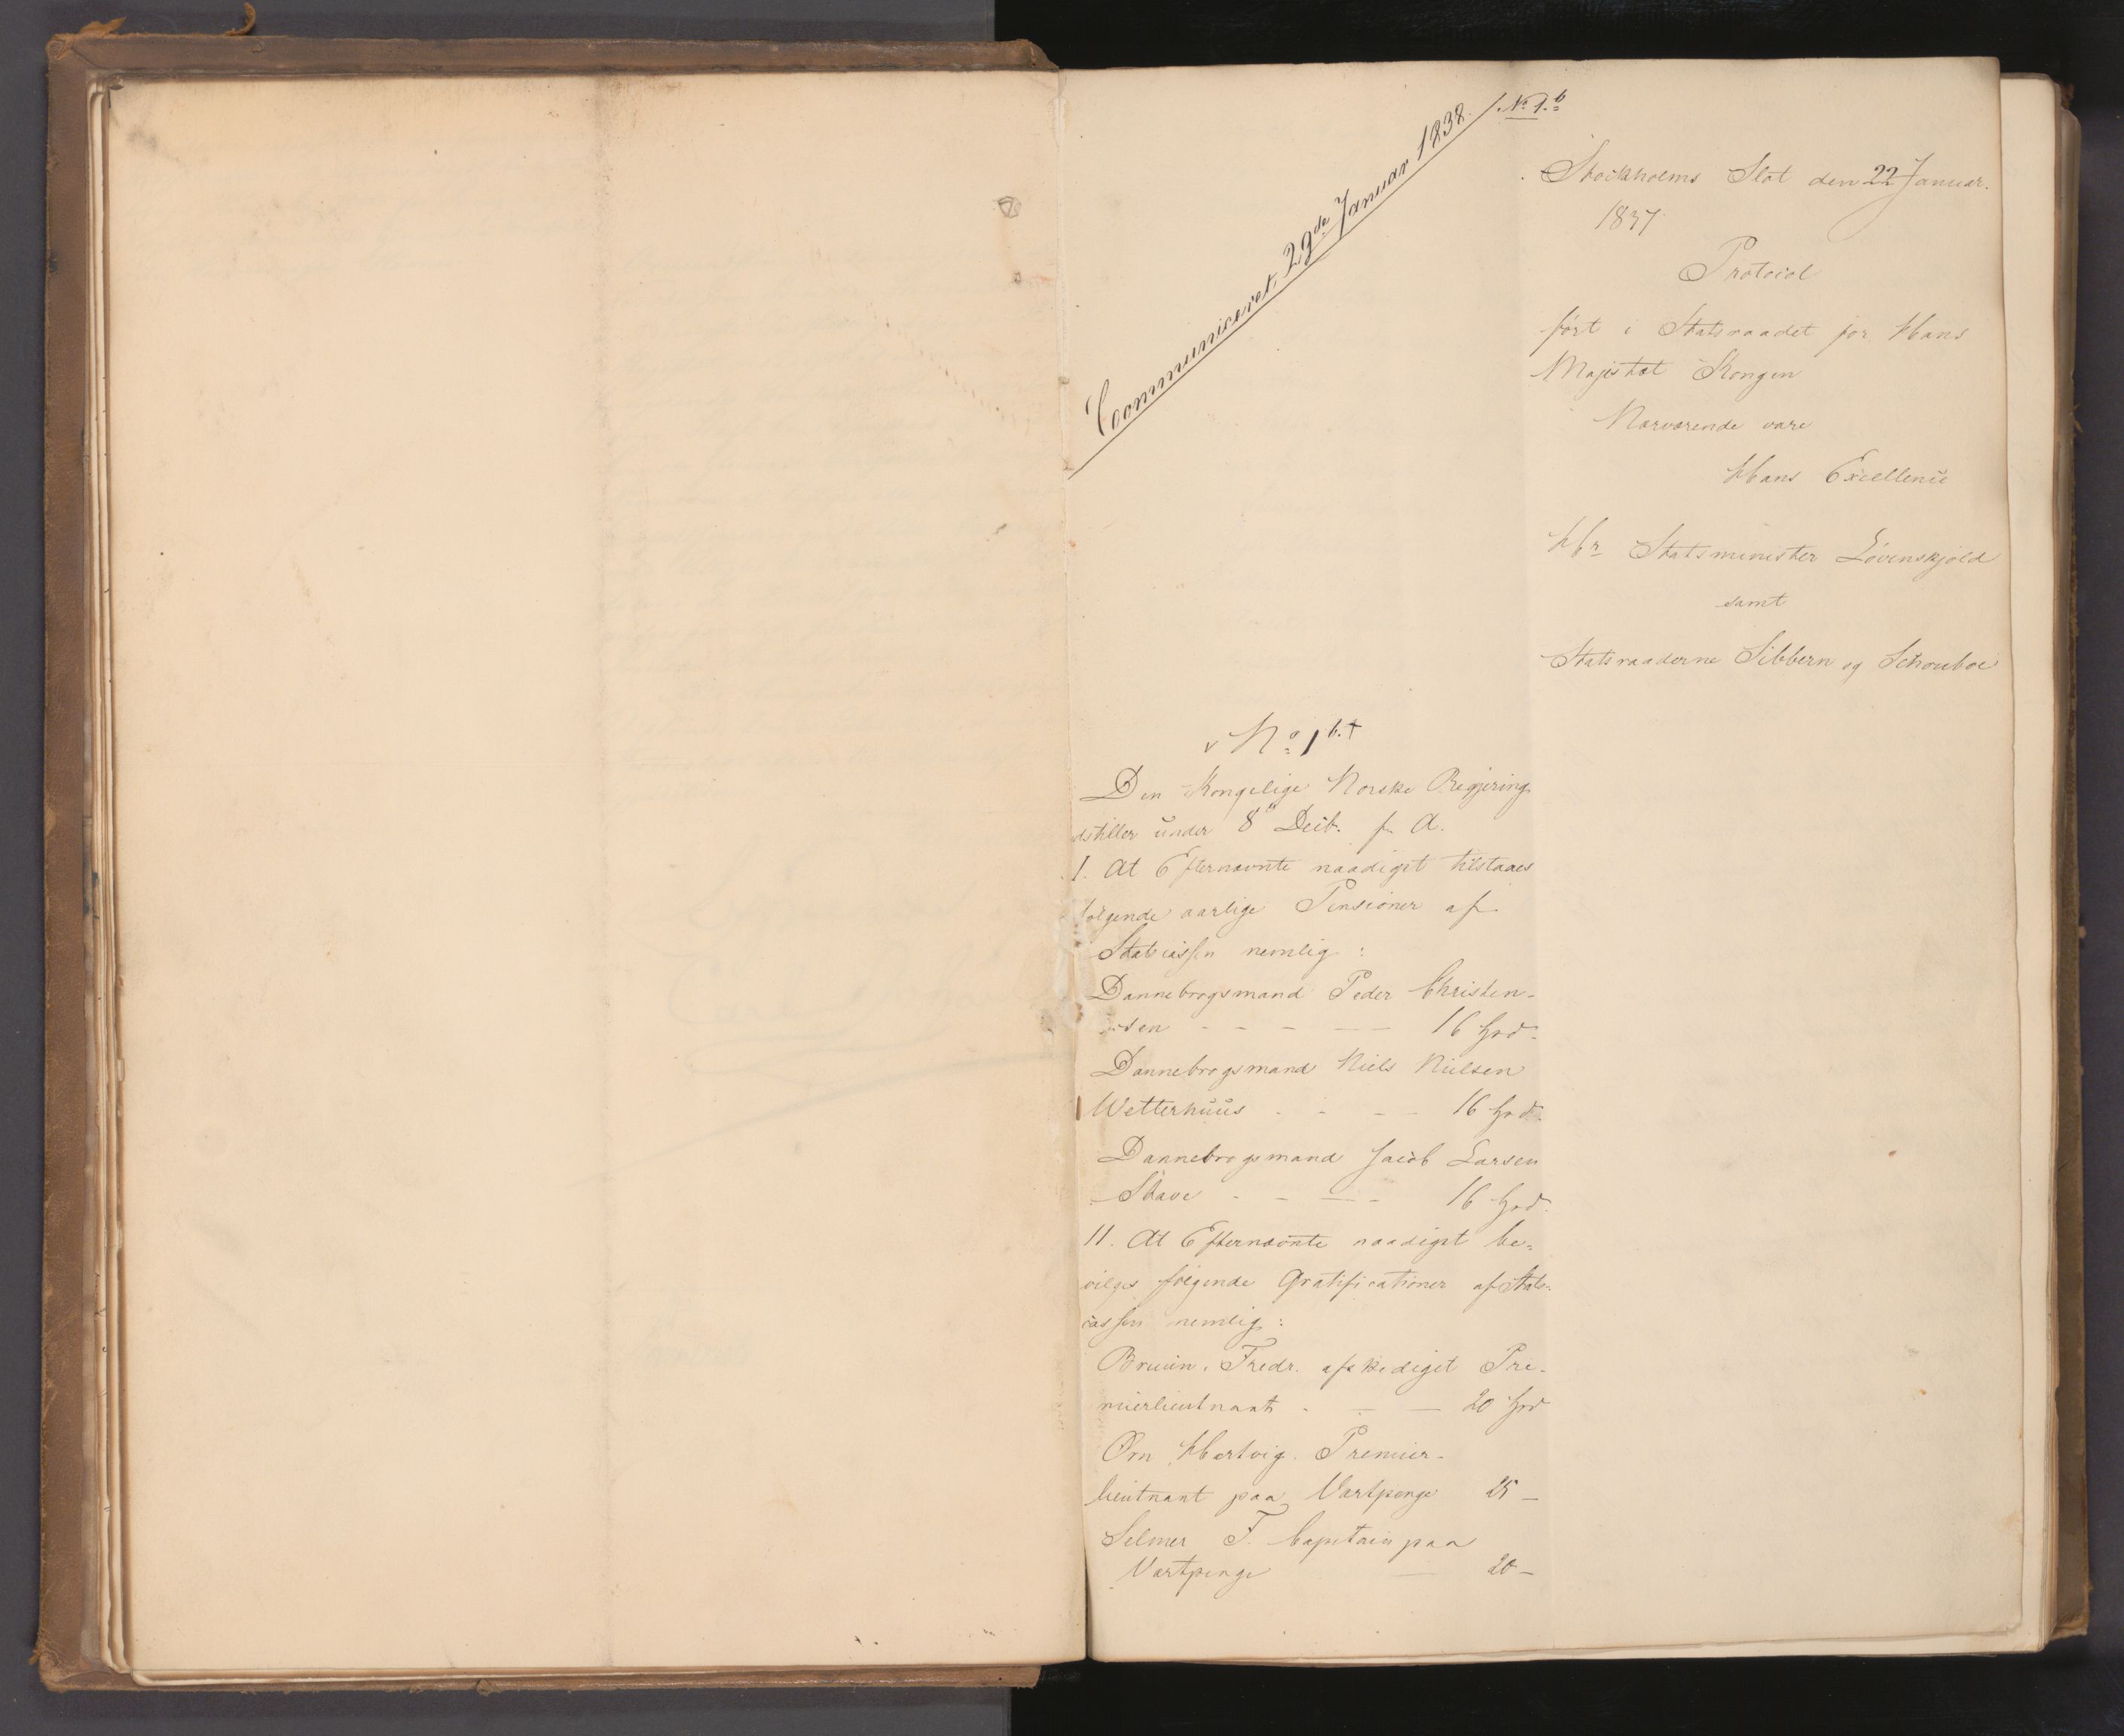 Coommuniceret, 29de Januar 1838. /. No 1.b
Stockholms Slot den 22 Januar.
1837
Protocol
ført i Statsraadet for Hans
Majestæt Kongen
Nærværende vare
Hans Excellence
Hr Statsminister Løvenskjold
samt
Statsraaderne Sibbern og Schouboe
No 1 b. +
Den Kongelige Norske Regjering
dstiller under 8de Decb. f. A.
I. At Efternævnte naadigst tilstaaes
følgende aarlige Pensioner af
Statscassen nemlig:
Dannebrogsmand Peder Christen-
sen - - - - - 16 Spd.
Dannebrogsmand Niels Nielsen
Wetterhuus - - - - 16 Spd.
Dannebrogsmand Jacob Larsen
Stave - - - - 16 Spd.
II. At Efternævnte naadigst be-
vilges følgende Gratificationer af Stats-
cassen nemlig:
Bruun, Fredr. afskediget Pre-
mierlieutnant - - - 20 Spd
Ørn Hartvig. Premier-
lieutnant paa Vartpenge 25 -
Selmer F. Capitain paa
Vartpenge - 20 -